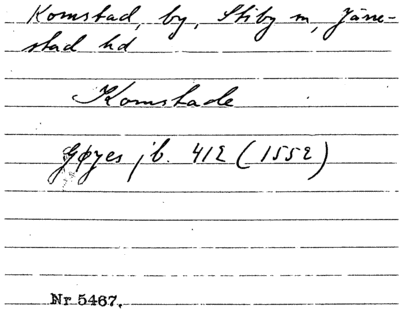 Komstad, by, Stiby sn, Järre-
stad hd
Komstade
Gøyes jb. 412 (1552)
Nr 5467.